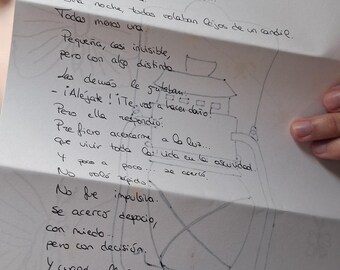 una noche todas volaban lejos de un candil.
Todas menos una
Pequeña, casi invisible,
pero con algo distinto.
Las demás le gritaban
- ¡Aléjate! ¡Te vas a hacer daño!
Pero ella respondió
Prefiero acercarme a la luz...
que vivir toda la vida en la oscuridad.
Y poco a poco... se acercó
No voló rápido
No fue impulsiva.
se acercó despacio,
con miedo..
pero con decisión.
Y cuando